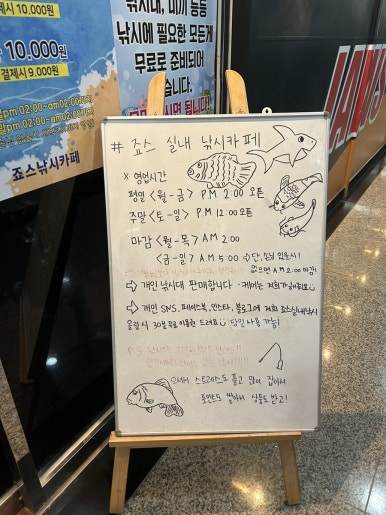 제시 10,000원
10,000원
결제시 9,000원
pm 02:00~am02:00
죠스낚시카페
낚시대, 미끼 등등
낚시에 필요한 모든게
무료로 준비되어
있습니다.
# 죠스 실내 낚시카페
※ 영업시간
평일 <월-금> PM 2:00 오픈
주말 <토-일> PM 12:00 오픈
마감 <월-목> AM 2:00
<금-일> AM 5:00 → 단, 손님 있을시!
없으면 AM 2:00 마감!
⇨ 개인 낚시대 판매합니다
⇨ 개인 SNS, 페이스북, 인스타, 블로그에 저희 죠스실내낚시
올릴시 30분 무료이용권 드려요 당일 사용 가능!
P.S
오셔서 스트레스도 풀고 많이 잡아서
포인트도 쌓아서 상품도 받고!